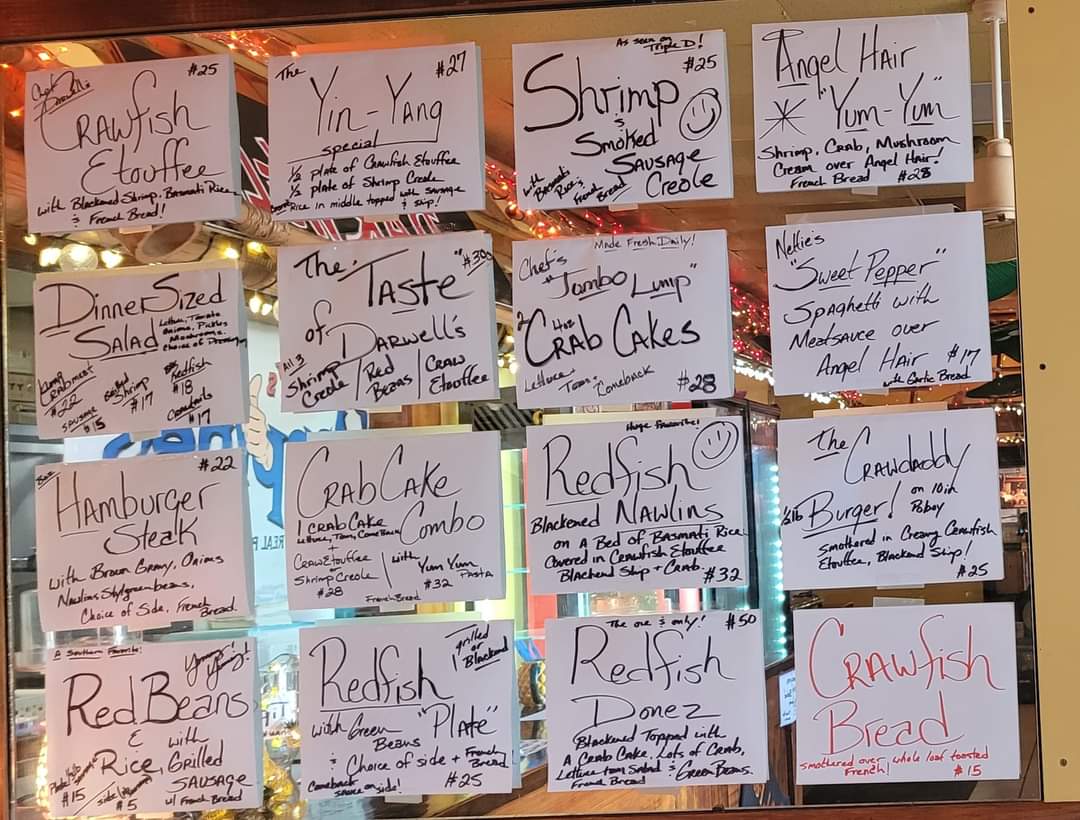 Chef Darwell's
#25
Crawfish
Etouffee
with Blackened Shrimp, Basmati Rice
& French Bread!
The
#27
Yin-Yang
special
1/2 plate of Crawfish Etouffee
1/2 plate of Shrimp Creole
Rice in middle topped with sausage & skip!
As seen on
Triple D!
#25
Shrimp
&
Smoked
Sausage
Creole
with
Basmati
Rice &
French
Bread
Angel Hair
"Yum-Yum"
Shrimp, Crab, Mushroom
Cream over Angel Hair!
French Bread #28
Dinner Sized
Salad
Lettuce, Tomato
Onions, Pickles
Mushrooms,
Choice of Dressing
Lump
Crabmeat
#22
Sausage
#15
Shrimp
#17
Redfish
#18
Crawtails
#17
The "Taste" #30
of Darwell's
All 3
Shrimp
Creole / Red
Beans / Craw
Etouffee
Made Fresh Daily!
Chef's
"Jumbo Lump"
2 4oz
Crab Cakes
Lettuce, Tom, Comeback
#28
Nettie's
"Sweet Pepper"
Spaghetti with
Meatsauce over
Angel Hair #17
with Garlic Bread
8oz
#22
Hamburger
Steak
with Brown Gravy, Onions
Nawlins Style greenbeans,
Choice of Side, French
Bread
Crab Cake
Combo
1 Crab Cake
Lettuce, Tom, Comeback
+
Craw Etouffee
or
Shrimp Creole
#28
with
Yum Yum
Pasta
#32
French Bread
Huge Favorite!
Redfish
Blackened Nawlins
on a Bed of Basmati Rice
Covered in Crawfish Etouffee
Blackend Skip + Crab. #32
The
Crawdaddy
Burger!
1/2 lb
on 10in
Poboy
smothered in Creamy Crawfish
Etouffee, Blackend Skip!
#25
A Southern Favorite!
Yummy
Yummy!
Red Beans
&
Rice
with
Grilled
Sausage
w/ French Bread
#15
side
#5
grilled
or
Blackend
Redfish
"Plate"
with Green
Beans
& Choice of side + French
Bread
Comeback
sauce on side!
#25
The one & only!
#50
Redfish
Donez
Blackened Topped with
A Crab Cake, Lots of Crab,
Lettuce tom Salad & Green Beans.
French Bread
Crawfish
Bread
smothered over whole loaf toasted
French! #15